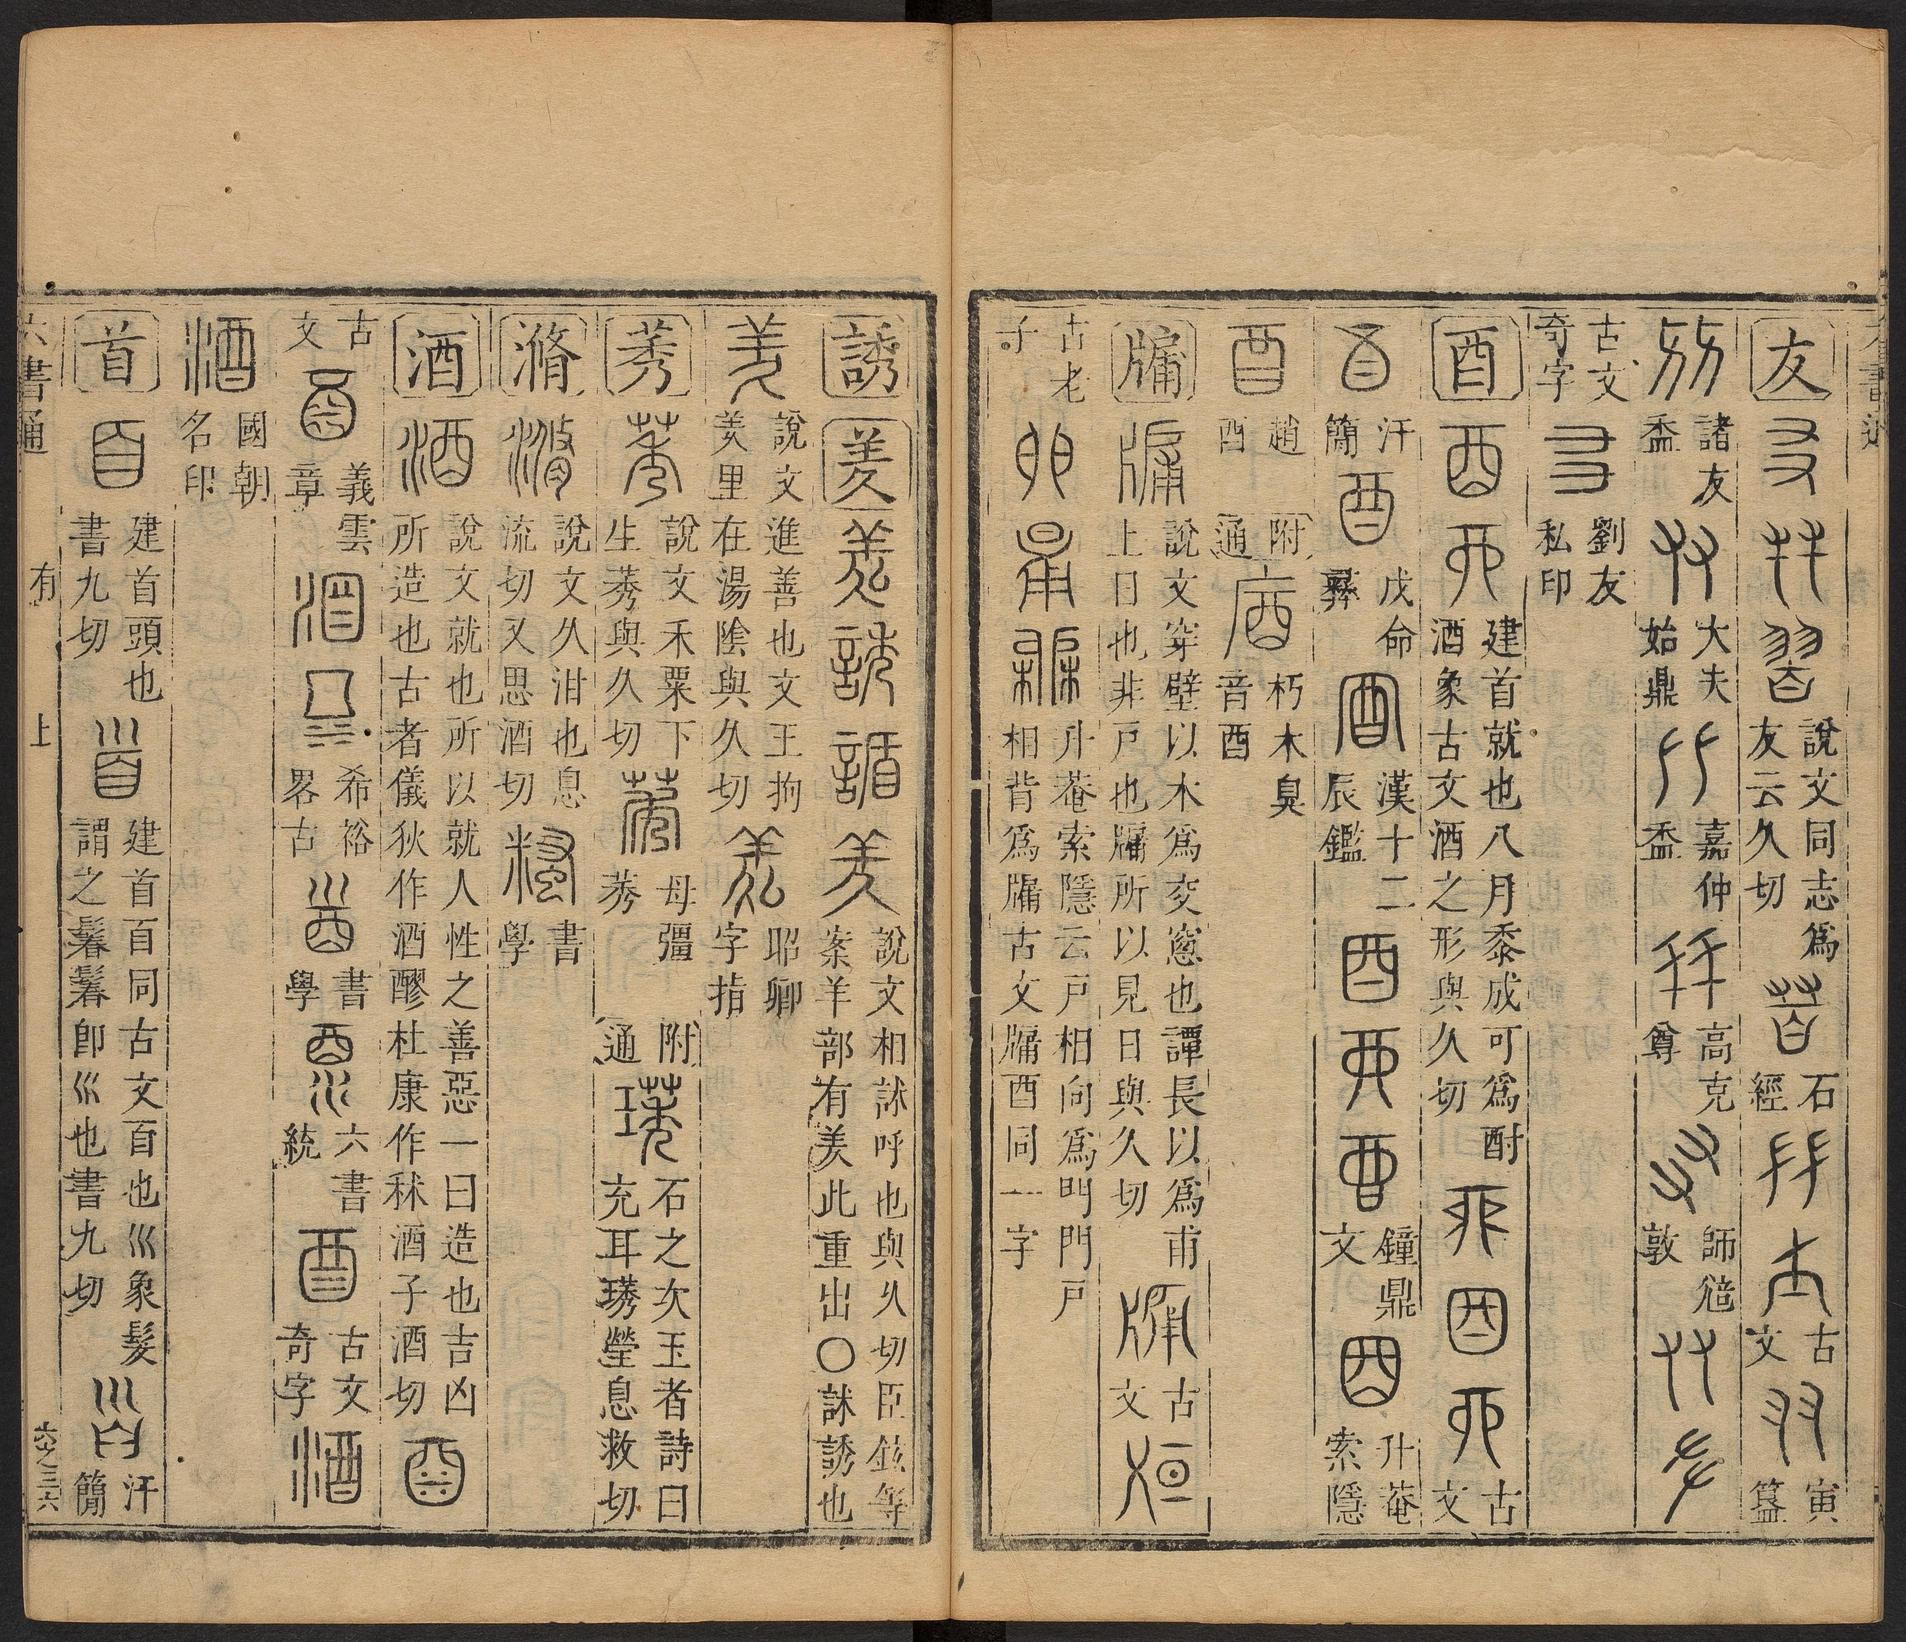 友
說文同志爲
友云久切
石
經
古
文
寅
簋
諸友
盉
大夫
始鼎
嘉仲
盉
高克
尊
師𩛥
敦
古文
奇字
劉友
私印
酉
建首就也八月黍成可爲酎
酒象古文酒之形與久切
古
文
汗
簡
戊命
彝
漢十二
辰鑑
鐘鼎
文
升菴
索隱
趙
酉
附
通
朽木臭
音酉
牖
說文穿壁以木爲交窓也譚長以爲甫
上日也非戶也牖所以見日與久切
古
文
古老
子
升菴索隱云戶相向爲門門戶
相背爲牖古文牖酉同一字
誘
羑
說文相訹呼也與久切臣鉉等
案羊部有羑此重出〇訹誘也
說文進善也文王拘
羑里在湯陰與久切
昭卿
字指
莠
說文禾粟下
生莠與久切
母彊
莠
附
通
石之次玉者詩曰
充耳琇瑩息救切
滫
說文久泔也息
流切又思酒切
書
學
酒
說文就也所以就人性之善惡一曰造也吉凶
所造也古者儀狄作酒醪杜康作秫酒子酒切
古
文
義雲
章
希裕
畧古
書
學
六書
統
古文
奇字
國朝
名印
首
建首頭也
書九切
建首百同古文百也巛象髮
謂之鬊鬊卽巛也書九切
汗
簡
六書通
有
上
六之三六